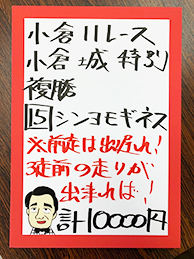 小倉11レース
小倉城特別
複勝
15シンヨモギネス
※前走は出遅れ!
3走前の走りが
出来れば!
計10000円